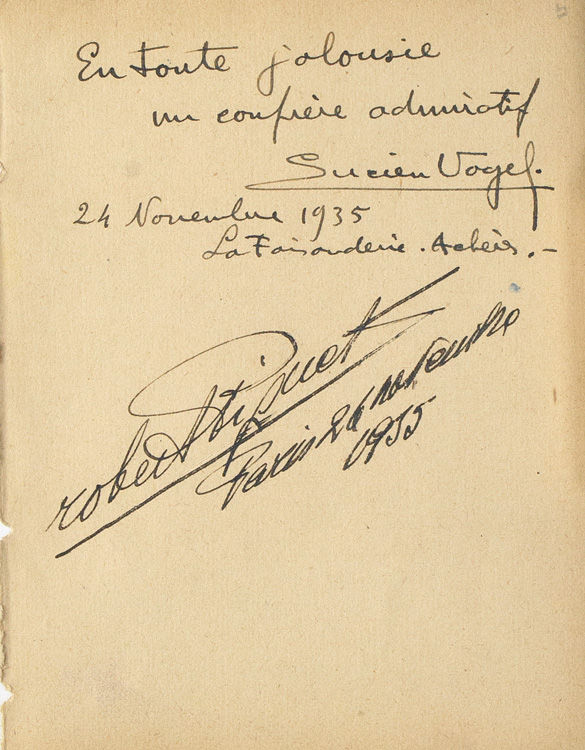 En toute jalousie
un confrère admiratif
Lucien Vogel.
24 Novembre 1935
La Faisanderie. Achères.-
robert Piguet
Paris 26 novembre
1935